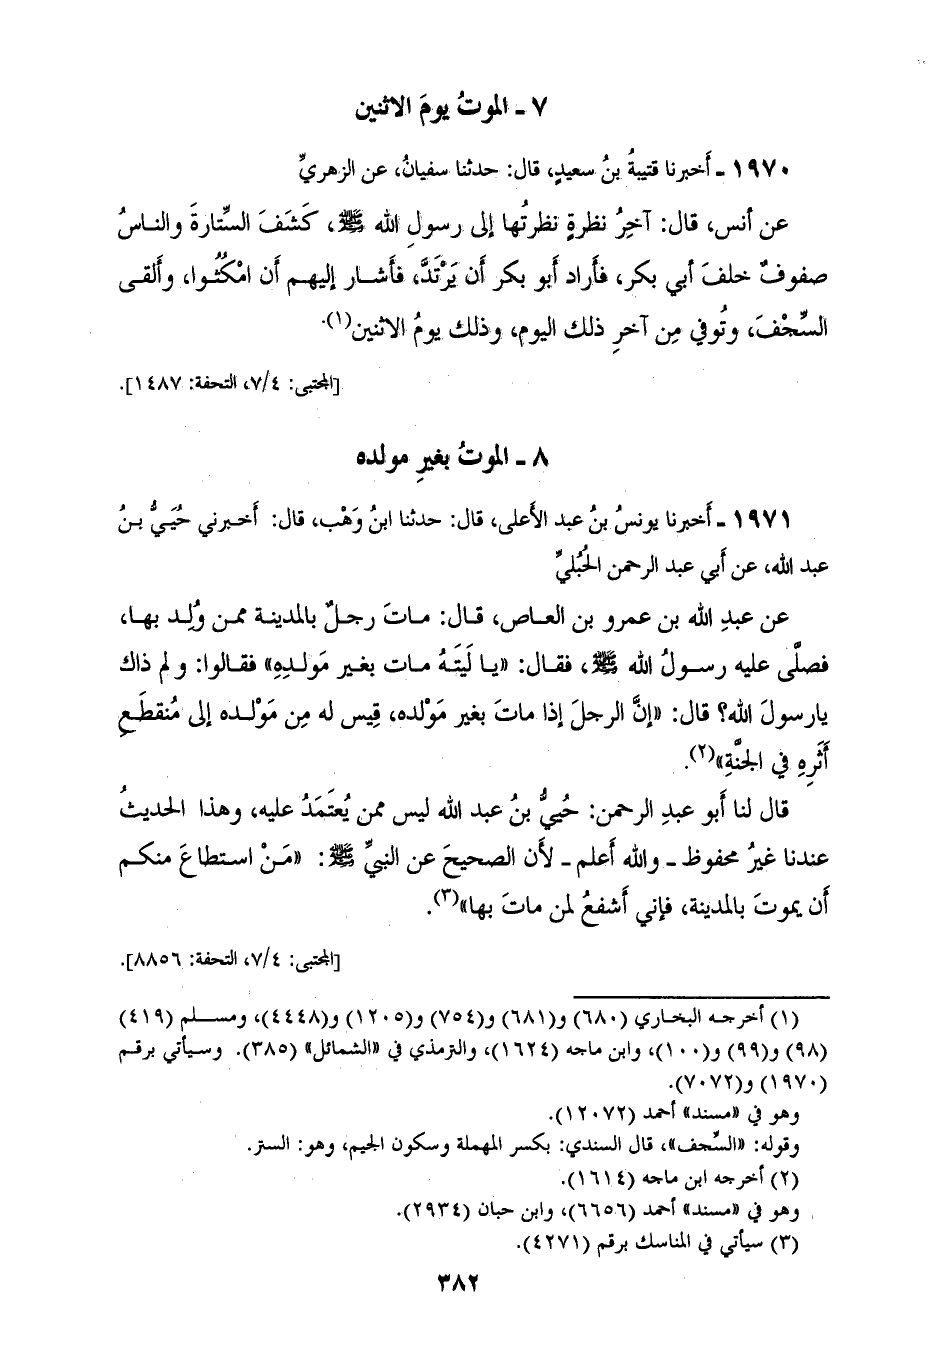 ٧ ـ الموتُ يومَ الاثنين
١٩٧٠ ـ أَخبرنا قتيبةُ بنُ سعيدٍ، قال: حدثنا سفيانُ، عن الزهريِّ
عن أنس، قال: آخِرُ نظرةٍ نظرتُها إلى رسولِ الله ﷺ، كَشَفَ السِّتارةَ والناسُ
صفوفٌ خلفَ أبي بكر، فأراد أبو بكر أن يَرْتَدَّ، فأشار إليهم أن امْكُثُوا، وألقى
السِّجْفَ، وتُوفي مِن آخرِ ذلك اليوم، وذلك يومُ الاثنين(١).
[المجتبى: ٧/٤، التحفة: ١٤٨٧].
٨ ـ الموتُ بغيرِ مولده
١٩٧١ ـ أَخبرنا يونسُ بنُ عبد الأَعلى، قال: حدثنا ابنُ وَهْب، قال: أَخبرني حُيَيُّ بنُ
عبد الله، عن أَبي عبد الرحمن الحُبُليِّ
عن عبدِ الله بن عمرو بن العاص، قال: ماتَ رجلٌ بالمدينة ممن وُلِد بها،
فصلَّى عليه رسولُ الله ﷺ، فقال: «يا لَيتَهُ مات بغير مَولدِهِ» فقالوا: ولم ذاك
يارسولَ الله؟ قال: «إنَّ الرجلَ إذا ماتَ بغير مَوْلده، قِيس له مِن مَوْلده إلى مُنقطَعِ
أَثَرِهِ في الجنَّةِ»(٢).
قال لنا أبو عبدِ الرحمن: حُييُّ بنُ عبد الله ليس ممن يُعتَمَدُ عليه، وهذا الحديثُ
عندنا غيرُ محفوظ ـ والله أعلم ـ لأن الصحيحَ عن النبيِّ ﷺ: «مَنْ استطاعَ منكم
أن يموتَ بالمدينة، فإني أشفعُ لمن ماتَ بها»(٣).
[المجتبى: ٧/٤، التحفة: ٨٨٥٦].
(١) أخرجه البخاري (٦٨٠) و(٦٨١) و(٧٥٤) و(١٢٠٥) و(٤٤٤٨)، ومسلم (٤١٩)
(٩٨) و(٩٩) و(١٠٠)، وابن ماجه (١٦٢٤)، والترمذي في «الشمائل» (٣٨٥). وسيأتي برقم
(١٩٧٠) و(٧٠٧٢).
وهو في «مسند» أحمد (١٢٠٧٢).
وقوله: «السِّجف»، قال السندي: بكسر المهملة وسكون الجيم، وهو: الستر.
(٢) أخرجه ابن ماجه (١٦١٤).
وهو في «مسند» أحمد (٦٦٥٦)، وابن حبان (٢٩٣٤).
(٣) سيأتي في المناسك برقم (٤٢٧١).
٣٨٢